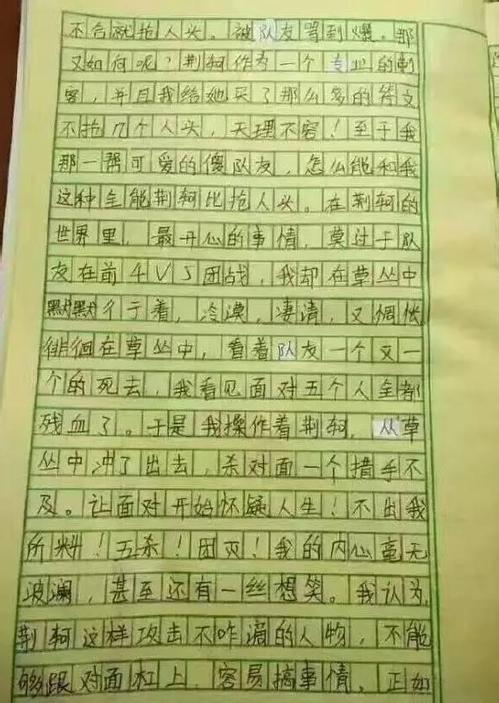 不合就抢人头。被队友骂到爆。那
又如何呢？荆轲作者一个专业的刺
客，并且我给她买了那么多的符文
不抢几个人头，天理不容！至于我
那一帮可爱的傻队友，怎么能和我
这种全能荆轲比抢人头。在荆轲的
世界里，最开心的事情，莫过于队
友在前4V5团战，我却在草丛中
默默彳亍着，冷漠，凄清，又惆怅
徘徊在草丛中，看着队友一个又一
个的死去，我看见面对五个人全都
残血了。于是我操作着荆轲，从草
丛中冲了出去，杀对面一个措手不
及。让面对开始怀疑人生！不出我
所料！五杀！团灭！我的内心毫无
波澜，甚至还有一丝想笑。我认为，
荆轲这样攻击不咋滴的人物，不能
够跟对面杠上，容易搞事情。正如